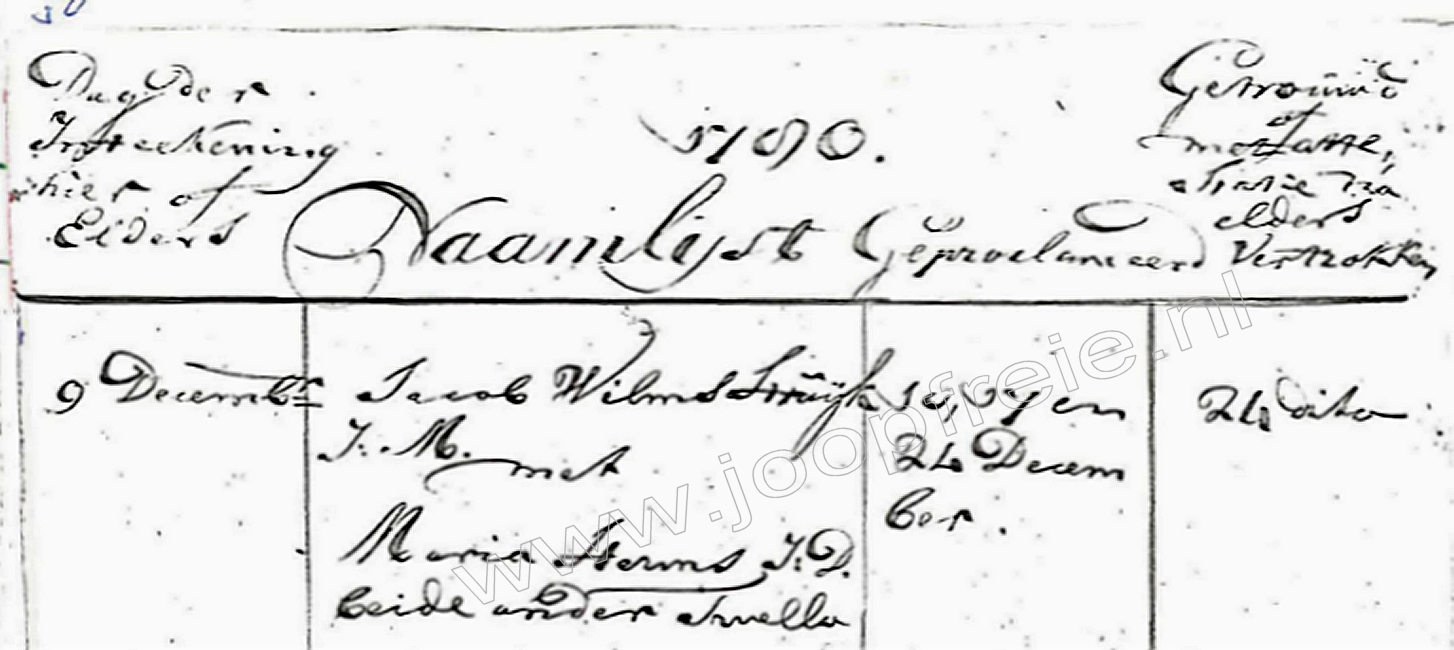 Dag der
Inteekening
hier of
Elders
1780.
Naamlijst
Geproclameerd
Getrouwd
of
met atte,
statie na
elders
Vertrokken
9 Decembr
Jacob Wilms
J. M. met
Maria Herms J. D.
beide onder Twello
10, 17 en
24 Decem
ber.
24 dito
www.joopfreie.nl